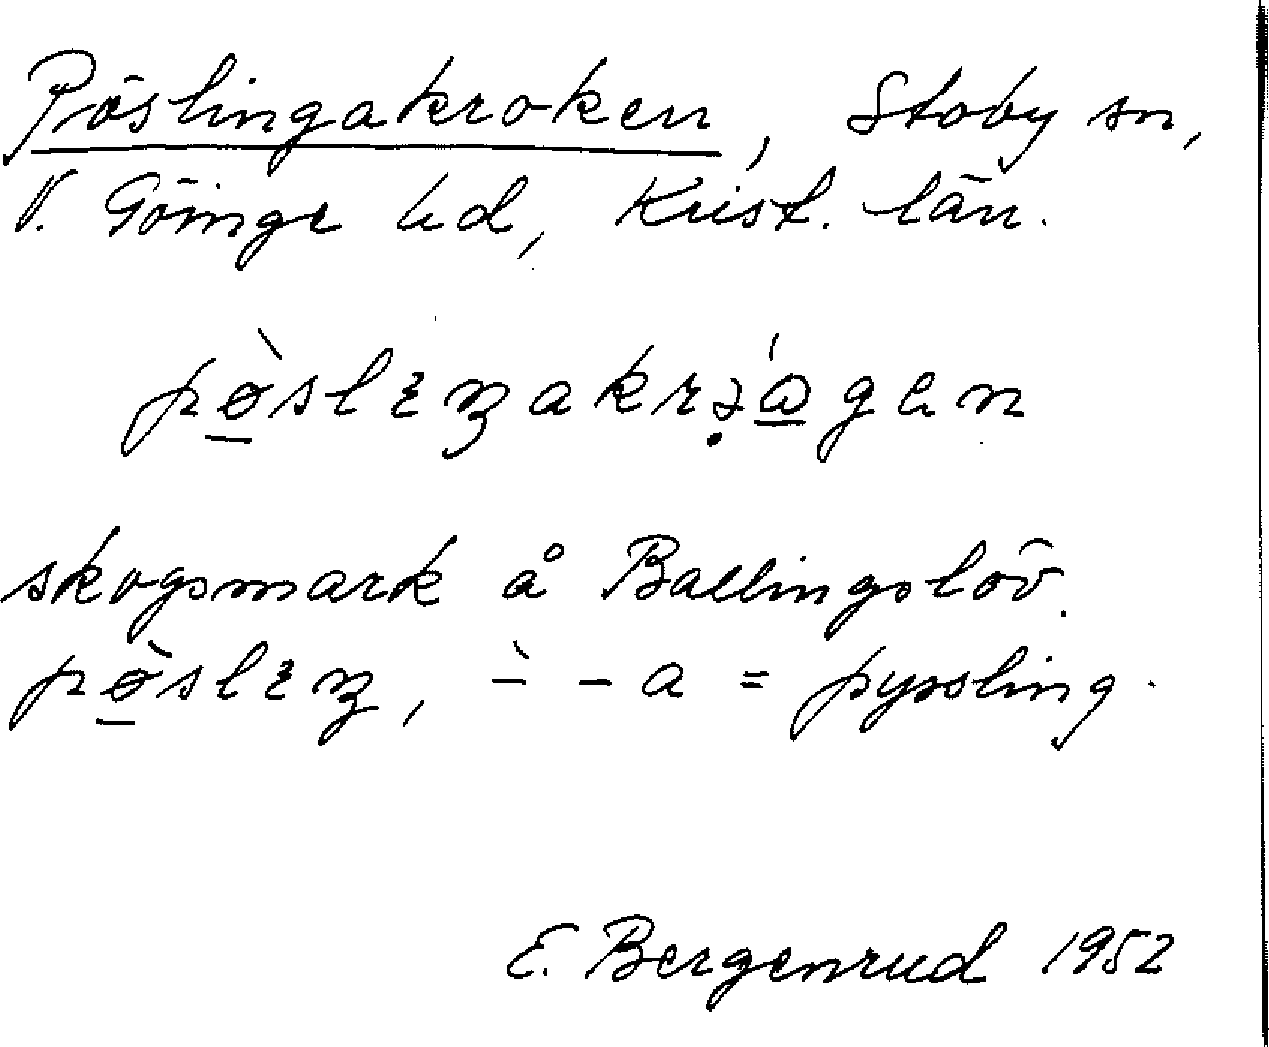 Pöslingakroken, Stoby sn,
V. Göinge hd, Krist. län.
pø̱̀slɪŋakrə̣́a̱gen
skogsmark å Ballingslöv.
pø̱̀slɪŋ, -̀ - a = pyssling.
E. Bergenrud 1952